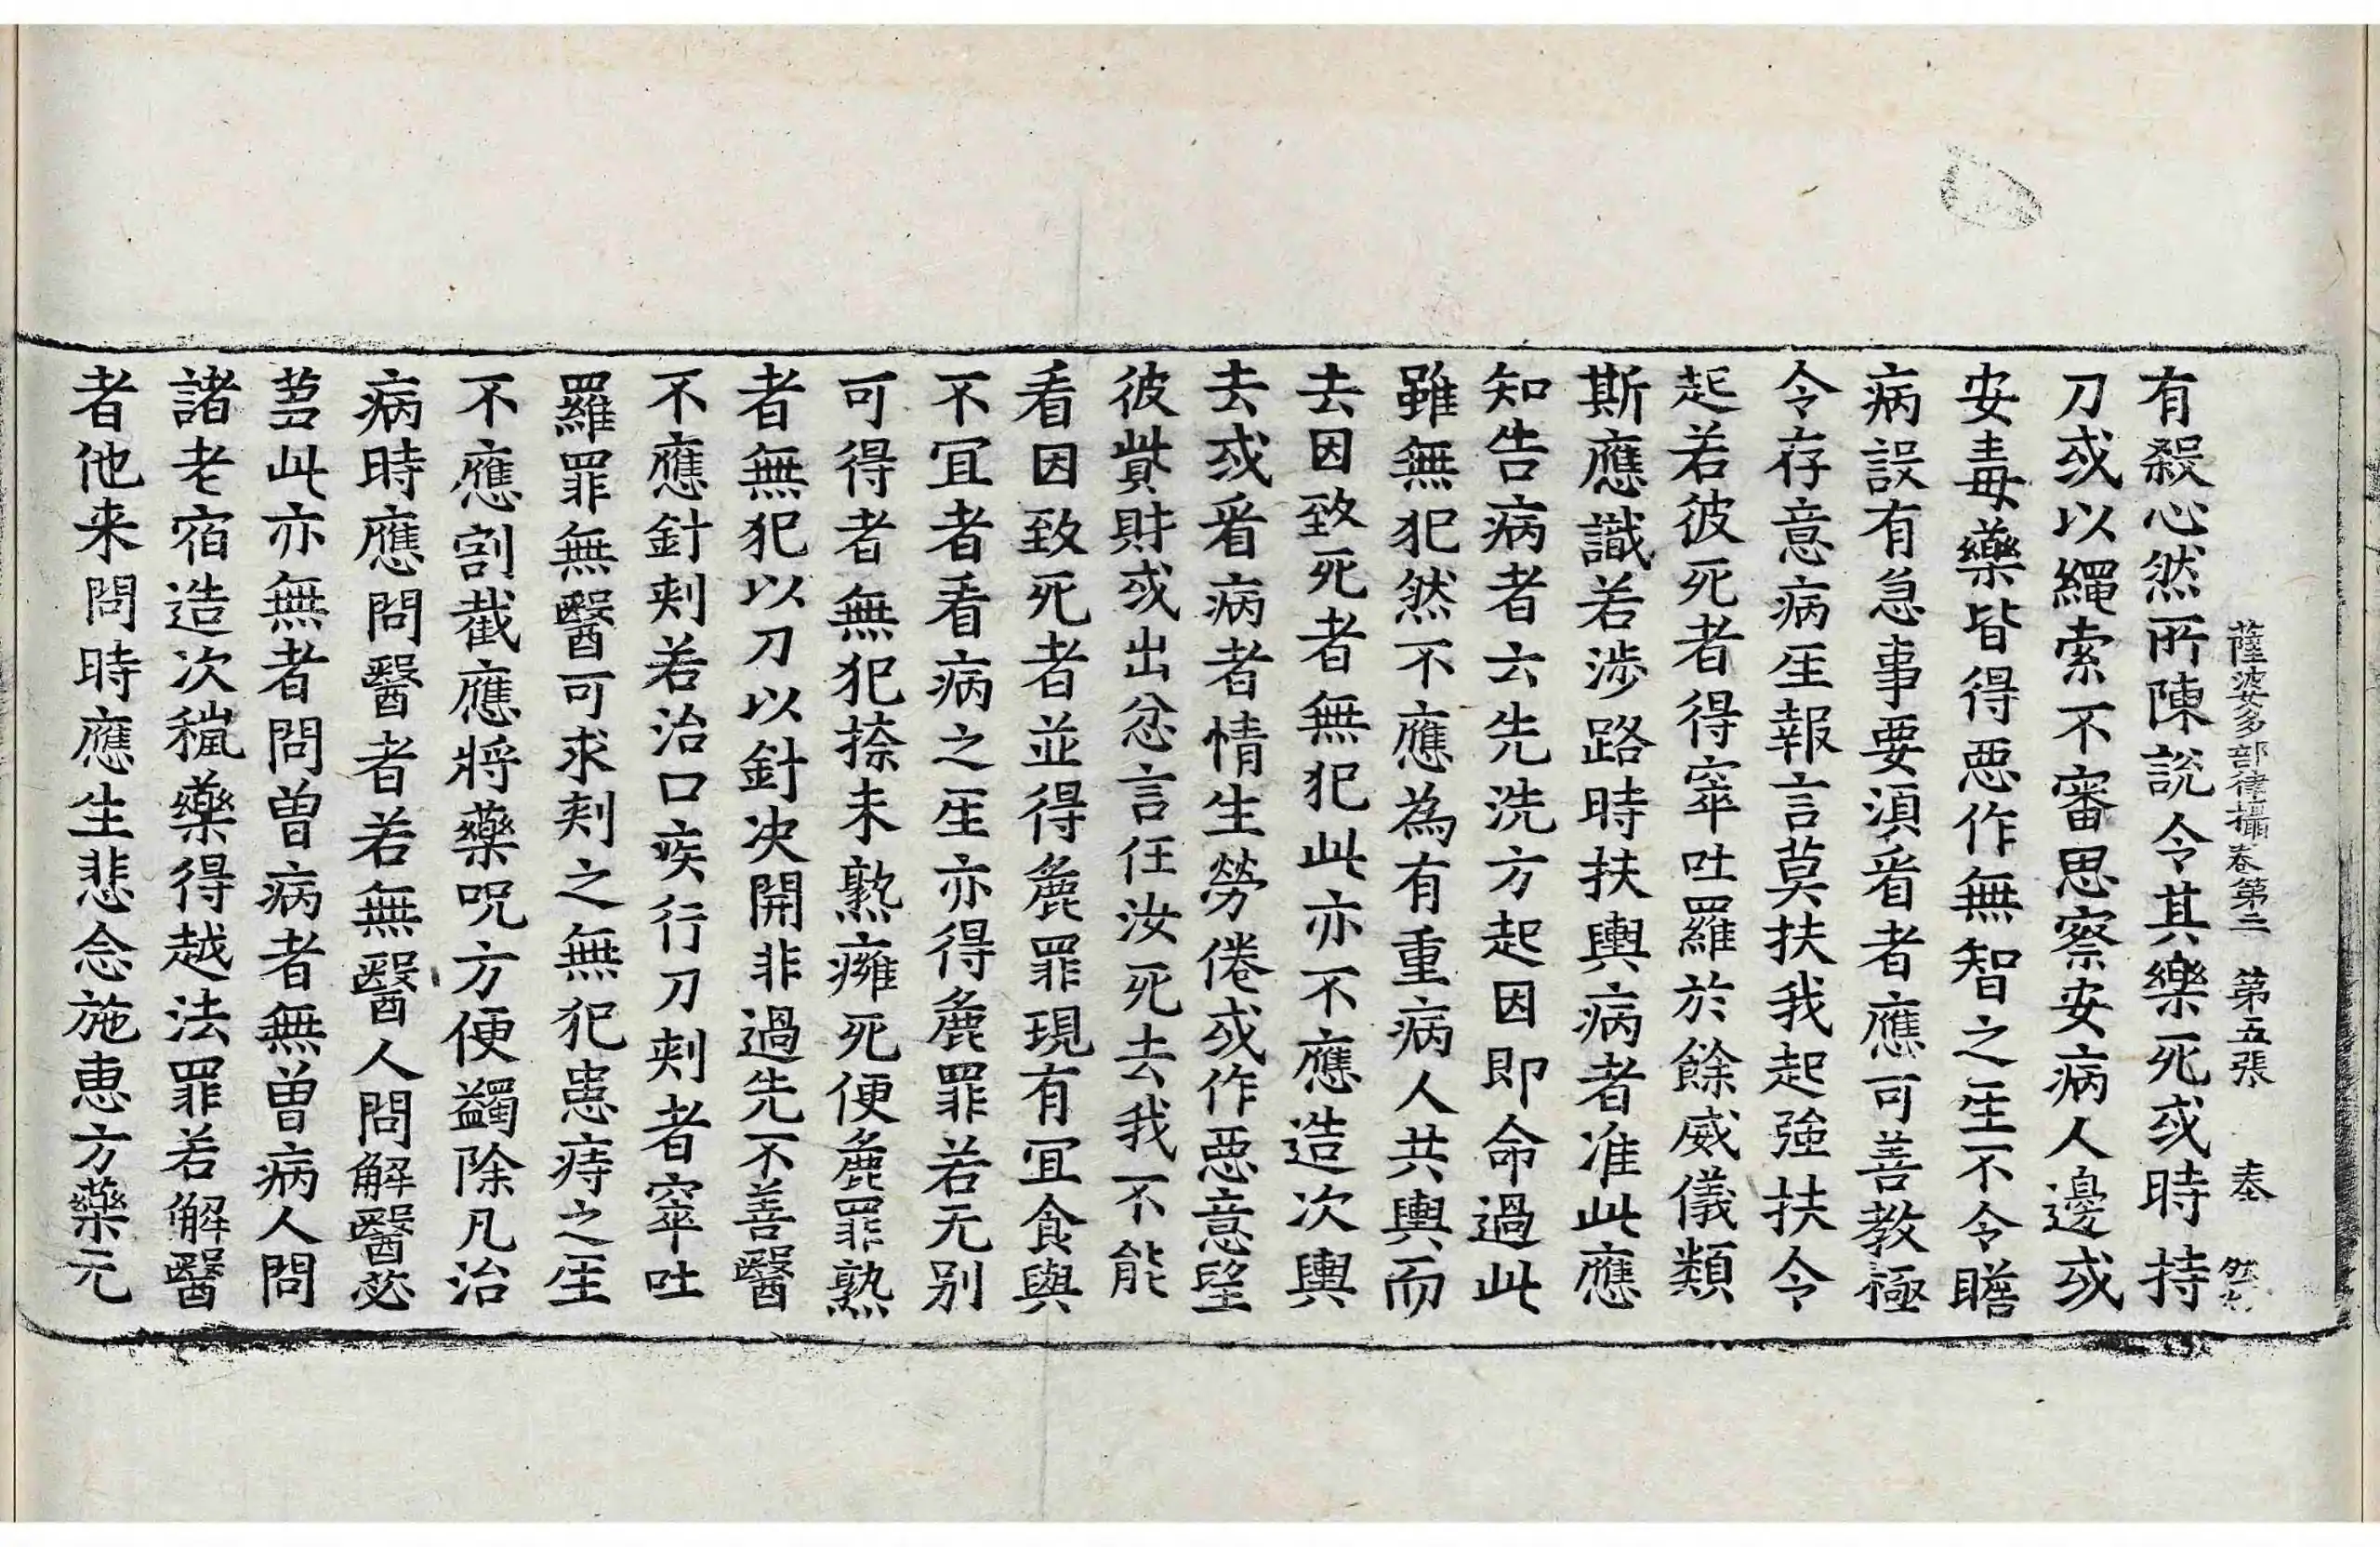 薩婆多部律攝卷第三　第五張　奉
有殺心然所陳說令其樂死或時持
刀或以繩索不審思察安病人邊或
安毒藥皆得惡作無智之𤯔不令瞻
病設有急事要湏㸔者應可善教極
令存意病𤯔報言莫扶我起強扶令
起若彼死者得窣吐羅於餘威儀類
斯應識若涉路時扶輿病者准此應
知告病者言先洗方起因即命過此
雖無犯然不應為有重病人共輿而
去因致死者無犯此亦不應造次輿
去或㸔病者情生勞倦或作惡意望
彼貲財或出忿言任汝死去我不能
看因致死者並得麁罪現有冝食與
不冝者看病之𤯔亦得麁罪若无別
可得者無犯捺未熟癰死便麁罪熟
者無犯以刀以針决開非過先不善醫
不應針刾若治口疾行刀刾者窣吐
羅罪無醫可求刾之無犯患痔之𤯔
不應割截應將藥呪方便蠲除凡治
病時應問醫者若無醫人問解醫苾
蒭此亦無者問曽病者無曽病人問
諸老宿造次𥡳藥得越法罪若解醫
者他来問時應生悲念施惠方藥元